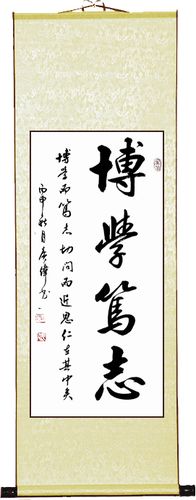 博學篤志
博学而篤志切问而近思仁在其中矣
丙申秋月